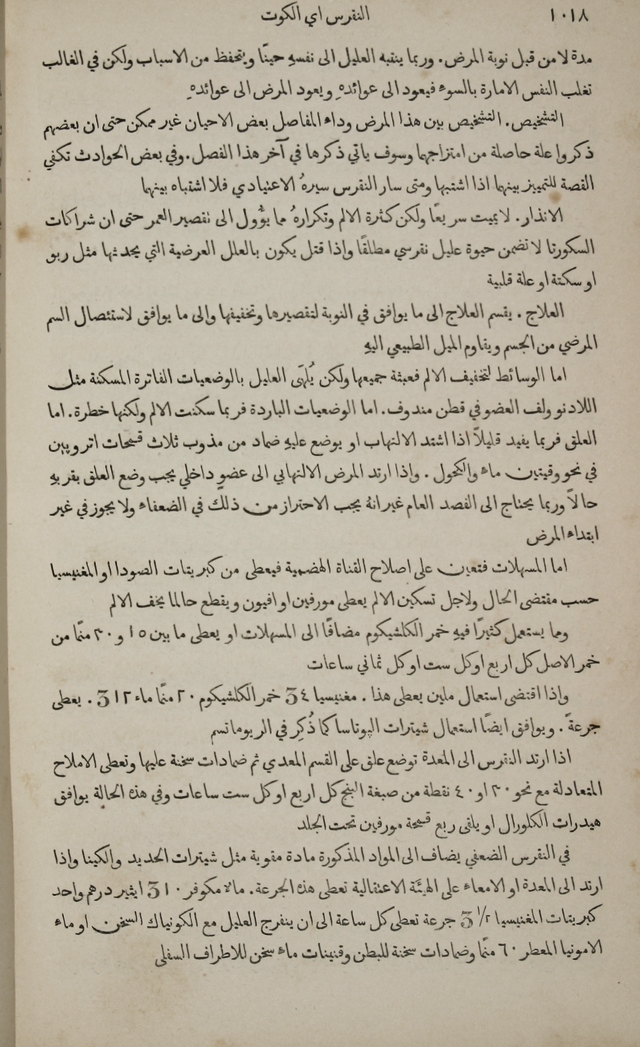 ١٠١٨ النقرس اي الكوت
مدة لامن قبل نوبة المرض. وربما ينتبه العليل الى نفسهِ حينًا ويتحفظ من الاسباب ولكن في الغالب
تغلب النفس الامارة بالسوء فيعود الى عوائدهِ ويعود المرض الى عوائدهِ
التشخيص. التشخيص بين هذا المرض وداء المفاصل بعض الاحيان غير ممكن حتى ان بعضهم
ذكروا علة حاصلة من امتزاجها وسوف ياتي ذكرها في آخر هذا الفصل. وفي بعض الحوادث تكفي
القصة للتمييز بينهما اذا اشتبها ومتى سار النقرس سيرهُ الاعتيادي فلا اشتباه بينهما
الانذار. لا يميت سريعًا ولكن كثرة الالم وتكرارهُ مما يؤُول الى تقصير العمر حتى ان شراكات
السكورتا لا تضمن حيوة عليل نقرسي مطلقًا واذا قتل يكون بالعلل العرضية التي يحدثها مثل ربو
او سكتة او علة قلبية
العلاج. يقسم العلاج الى ما يوافق في النوبة لتقصيرها وتخفيفها والى ما يوافق لاستئصال السم
المرضي من الجسم ويقاوم الميل الطبيعي اليهِ
اما الوسائط لتخفيف الالم فعبثة جميعها ولكن يُلهَى العليل بالوضعيات الفاترة المسكنة مثل
اللادنو ولف العضو في قطن مندوف. اما الوضعيات الباردة فربما سكنت الالم ولكنها خطرة. اما
العلق فربما يفيد قليلاً اذا اشتد الالتهاب او يوضع عليهِ ضماد من مذوب ثلاث قمحات اتروپين
في نحو وقيتين ماء والكحول. واذا ارتد المرض الالتهابي الى عضوٍ داخلي يجب وضع العلق بقربهِ
حالاً وربما يحتاج الى الفصد العام غير انهُ يجب الاحتراز من ذلك في الضعفاء ولا يجوز في غير
ابتداء المرض
اما المسهلات فتعين على اصلاح القناة الهضمية فيعطى من كبريتات الصودا او المغنيسيا
حسب مقتضى الحال ولاجل تسكين الالم يعطى مورفين او افيون ويقطع حالما يخف الالم
ومما يستعمل كثيرًا فيهِ خمر الكلشيكوم مضافًا الى المسهلات او يعطى ما بين ١٥ و ٢٠ منًّا من
خمر الاصل كل اربع او كل ست او كل ثماني ساعات
واذا اقتضى استعمال ملين يعطى هذا. مغنيسيا ʒ٤ خمر الكلشيكوم ٢٠ منًّا ماء ʒ١٢. يعطى
جرعةً. ويوافق ايضًا استعمال شيترات الپوتاسا كما ذُكر في الريوماتسم
اذا ارتد النقرس الى المعدة توضع علق على القسم المعدي ثم ضمادات سخنة عليها وتعطى الاملاح
المتعادلة مع نحو ٢٠ او ٤٠ نقطة من صبغة البنج كل اربع او كل ست ساعات وفي هذه الحالة يوافق
هيدرات الكلورال او يلقى ربع قمحة مورفين تحت الجلد
في النقرس الضعفي يضاف الى المواد المذكورة مادة مقوية مثل شيترات الحديد والكينا واذا
ارتد الى المعدة او الامعاء على الهيئة الاعتقالية تعطى هذه الجرعة. ماء مكوفر ʒ١٠ ايثير درهم واحد
كبريتات المغنيسيا ʒ١/٢ جرعة تعطى كل ساعة الى ان ينفرج العليل مع الكونياك السخن او ماء
الامونيا المعطر ٦٠ منًّا وضمادات سخنة للبطن وقنينات ماء سخن للاطراف السفلى